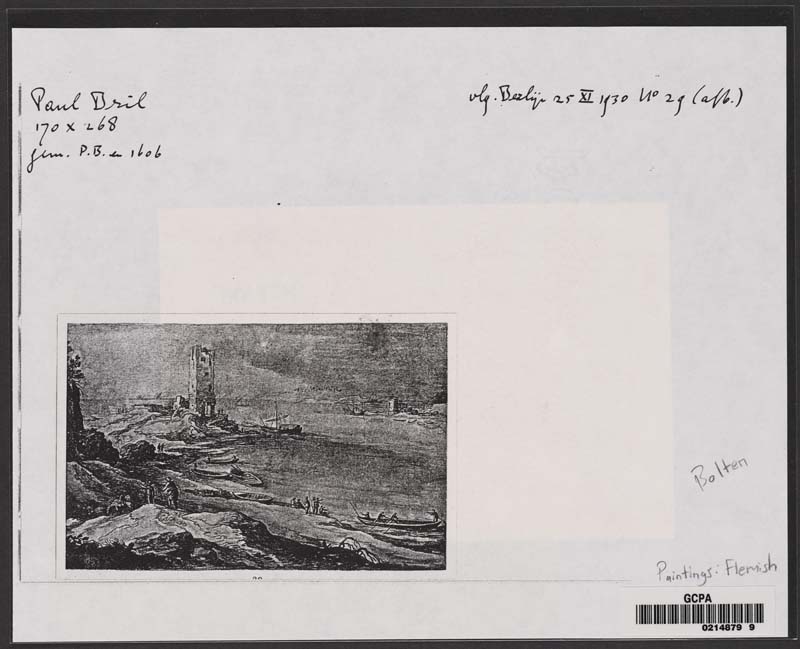 Paul Bril
170 x 268
gem. P.B. en 1606
vlg. Berlijn 25 XI 1930 No 29 (afb.)
Bolten
Paintings: Flemish
GCPA
0214879 9